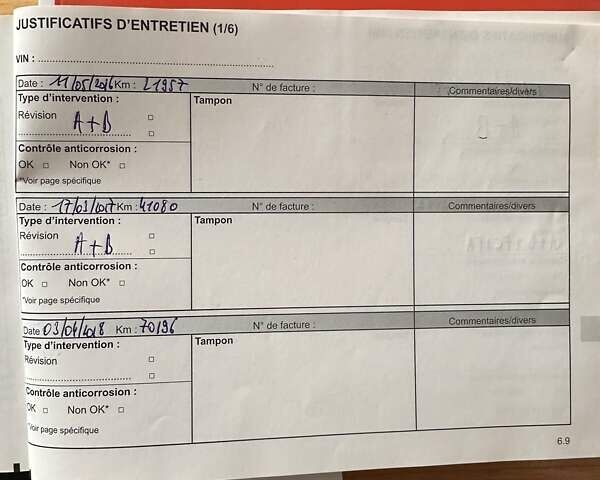 JUSTIFICATIFS D'ENTRETIEN (1/6)
VIN :
Date : 11/05/2016 Km : 21957 N° de facture : Commentaires/divers
Type d'intervention : Tampon
Révision A+B
Contrôle anticorrosion :
OK □ Non OK* □
*Voir page spécifique
Date : 17/03/2017 Km : 41080 N° de facture : Commentaires/divers
Type d'intervention : Tampon
Révision A+B
Contrôle anticorrosion :
OK □ Non OK* □
*Voir page spécifique
Date 03/04/2018 Km : 70196 N° de facture : Commentaires/divers
Type d'intervention : Tampon
Révision □
Contrôle anticorrosion :
OK □ Non OK* □
*Voir page spécifique
6.9